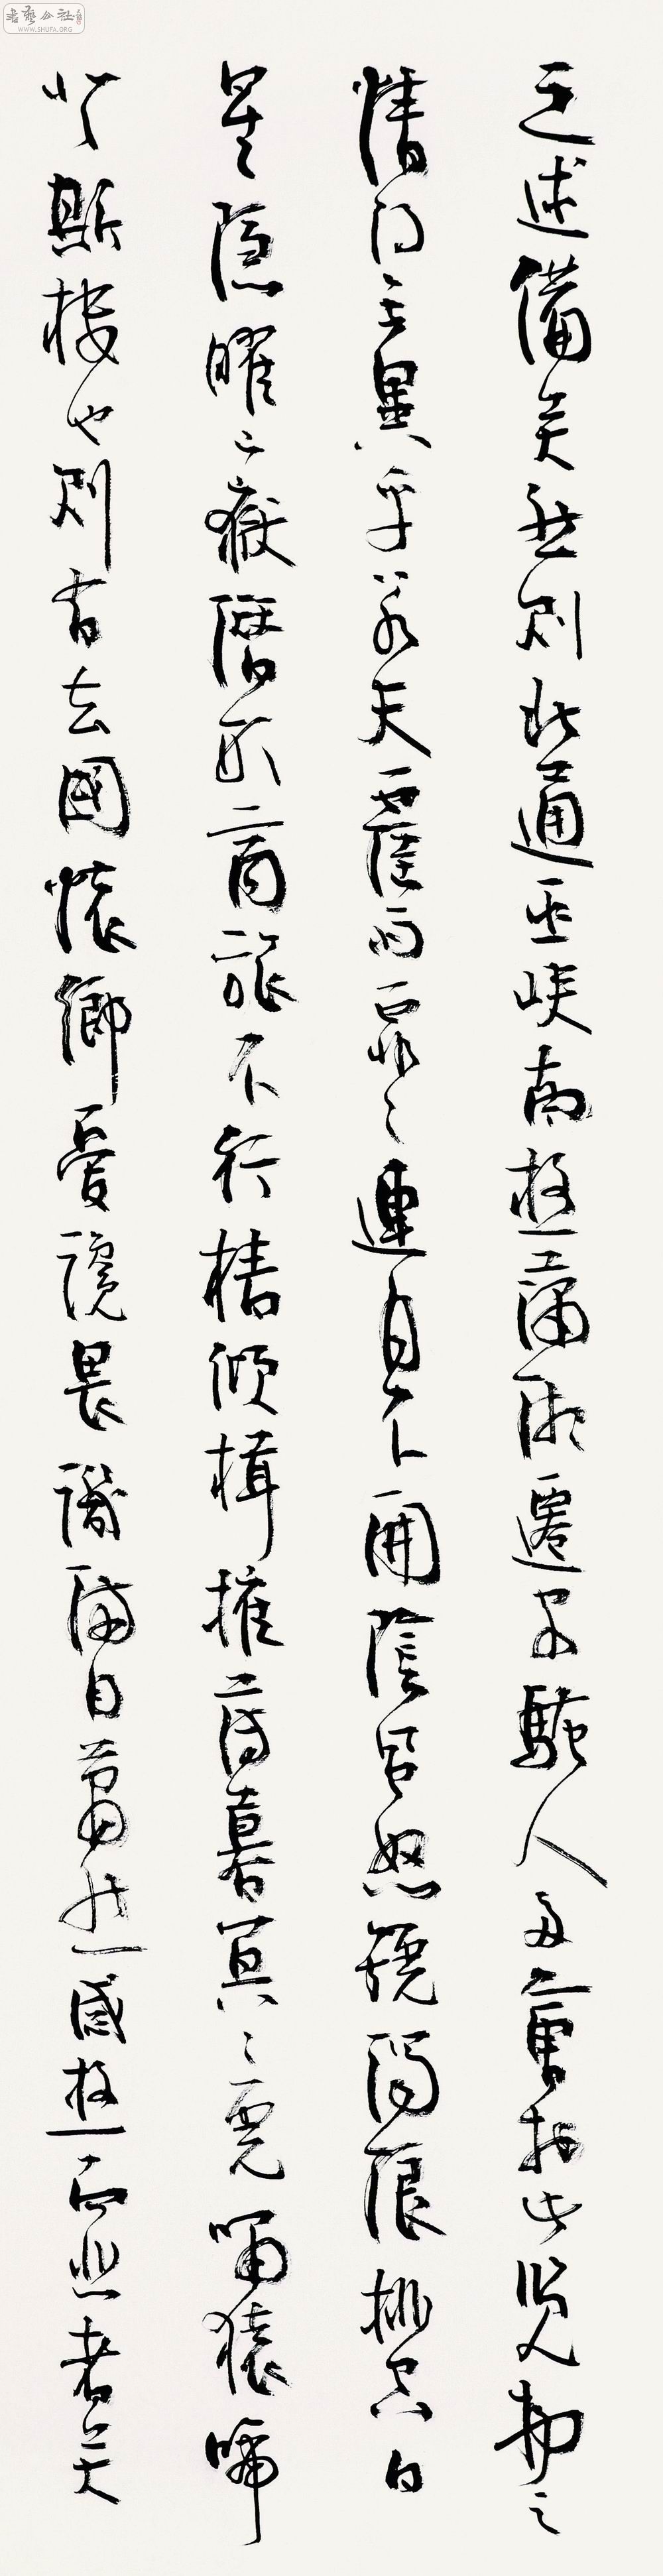 之述備矣然則北通巫峽南極瀟湘遷客騷人多會於此覽物之
情得無異乎若夫霪雨霏々連月不開陰風怒號濁浪排空日
星隱曜山嶽潛形商旅不行檣傾楫摧薄暮冥々虎嘯猿啼
登斯樓也則有去國懷鄉憂讒畏譏滿目蕭然感極而悲者矣
書藝公社
WWW.SHUFA.ORG